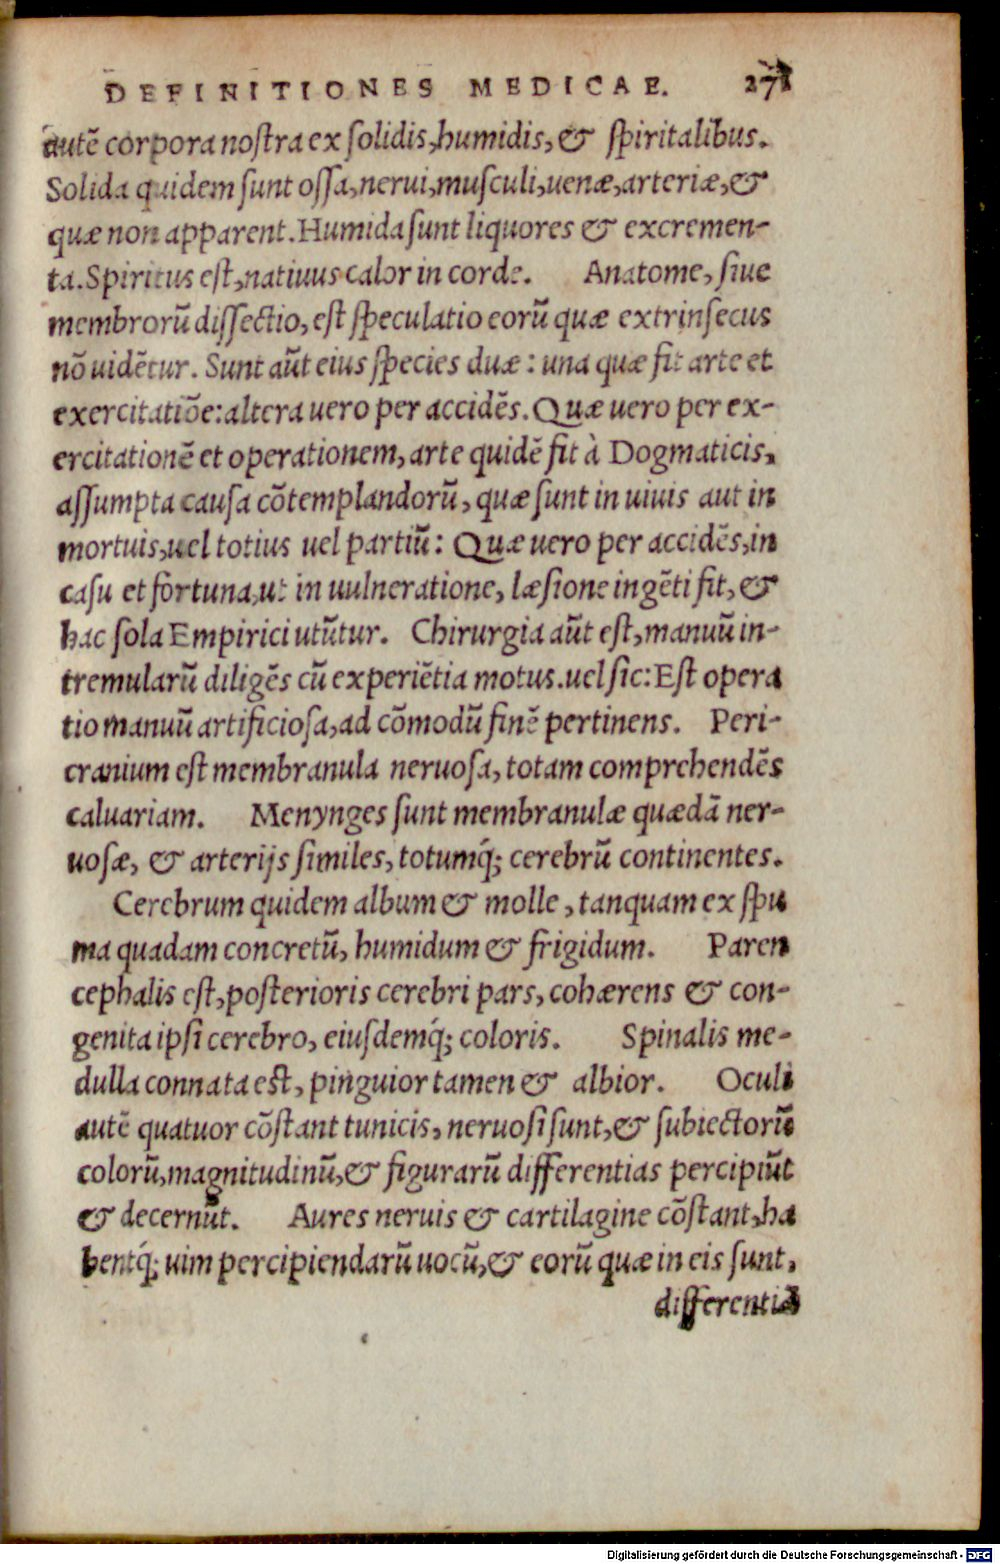 DEFINITIONES MEDICAE.
autē corpora noſtra ex ſolidis, humidis, & ſpiritalibus.
Solida quidem ſunt oſſa, nerui, muſculi, uenæ, arteriæ, &
quæ non apparent. Humida ſunt liquores & excremen-
ta. Spiritus eſt, natiuus calor in corde. Anatome, ſiue
membrorū diſſectio, eſt ſpeculatio eorū quæ extrinſecus
nō uidētur. Sunt aūt eius ſpecies duæ: una quæ fit arte et
exercitatiōe: altera uero per accidēs. Quæ uero per ex-
ercitationē et operationem, arte quidē fit à Dogmaticis,
aſſumpta cauſa cōtemplandorū, quæ ſunt in uiuis aut in
mortuis, uel totius uel partiū: Quæ uero per accidēs, in
caſu et fortuna, ut in uulneratione, læſione ingēti fit, &
hac ſola Empirici utūtur. Chirurgia aūt eſt, manuū in-
tremularū diligēs cū experiētia motus. uel ſic: Eſt opera
tio manuū artificioſa, ad cōmodū finē pertinens. Peri-
cranium eſt membranula neruoſa, totam comprehendēs
caluariam. Menynges ſunt membranulæ quædā ner-
uoſæ, & arterijs ſimiles, totumq́; cerebrū continentes.
Cerebrum quidem album & molle, tanquam ex ſpu
ma quadam concretū, humidum & frigidum. Paren
cephalis eſt, poſterioris cerebri pars, cohærens & con-
genita ipſi cerebro, eiuſdemq́; coloris. Spinalis me-
dulla connata eſt, pinguior tamen & albior. Oculi
autē quatuor cōſtant tunicis, neruoſi ſunt, & ſubiectorū
colorū, magnitudinū, & figurarū differentias percipiūt
& decernūt. Aures neruis & cartilagine cōſtant, ha
bentq́; uim percipiendarū uocū, & eorū quæ in eis ſunt,
Digitalisierung gefördert durch die Deutsche Forschungsgemeinschaft - DFG